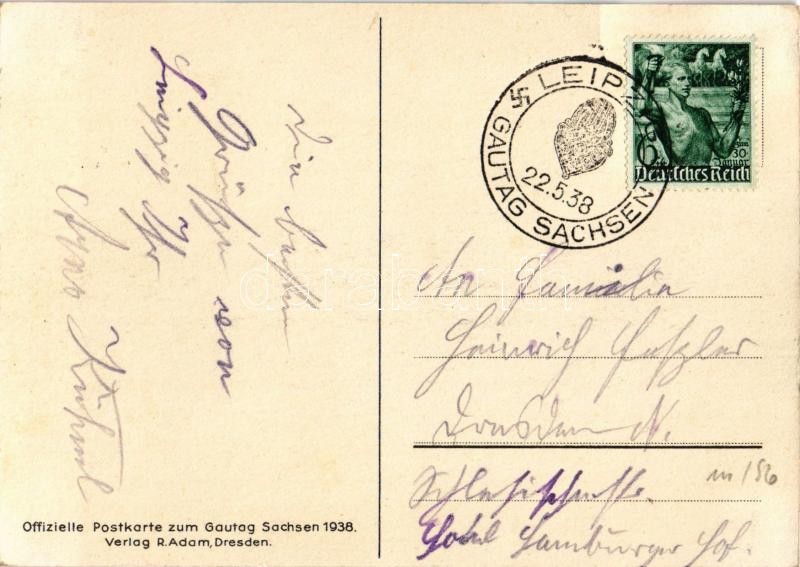 Die besten
Grüße von
Leipzig Ihr
Arno Kühnel
Offizielle Postkarte zum Gautag Sachsen 1938.
Verlag R. Adam, Dresden.
LEIPZIG
GAUTAG SACHSEN
22.5.38
6
30.
Januar
Deutsches Reich
An Familie
Heinrich
Dresden N.
Hotel Hamburger Hof.
m/56
darabanth